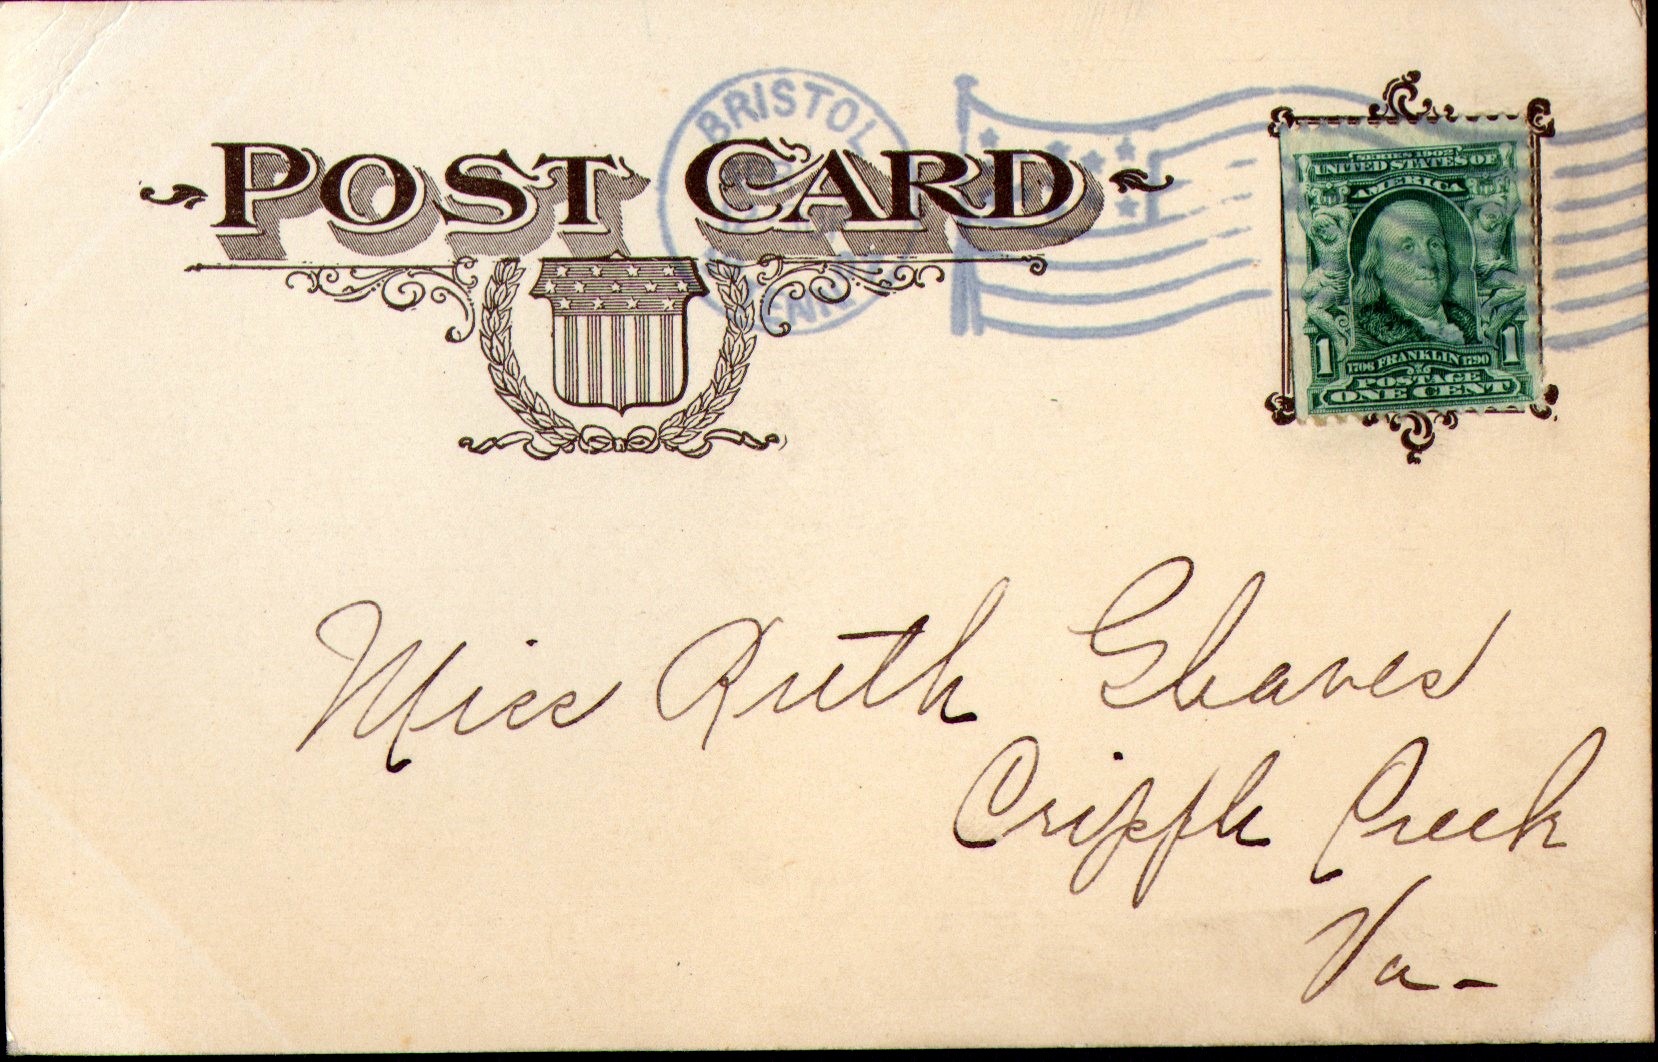 POST CARD
BRISTOL
SERIES 1902
UNITED STATES OF
AMERICA
1 1706 FRANKLIN 1790 1
POSTAGE
ONE CENT
Miss Ruth Graves
Cripple Creek
Va-